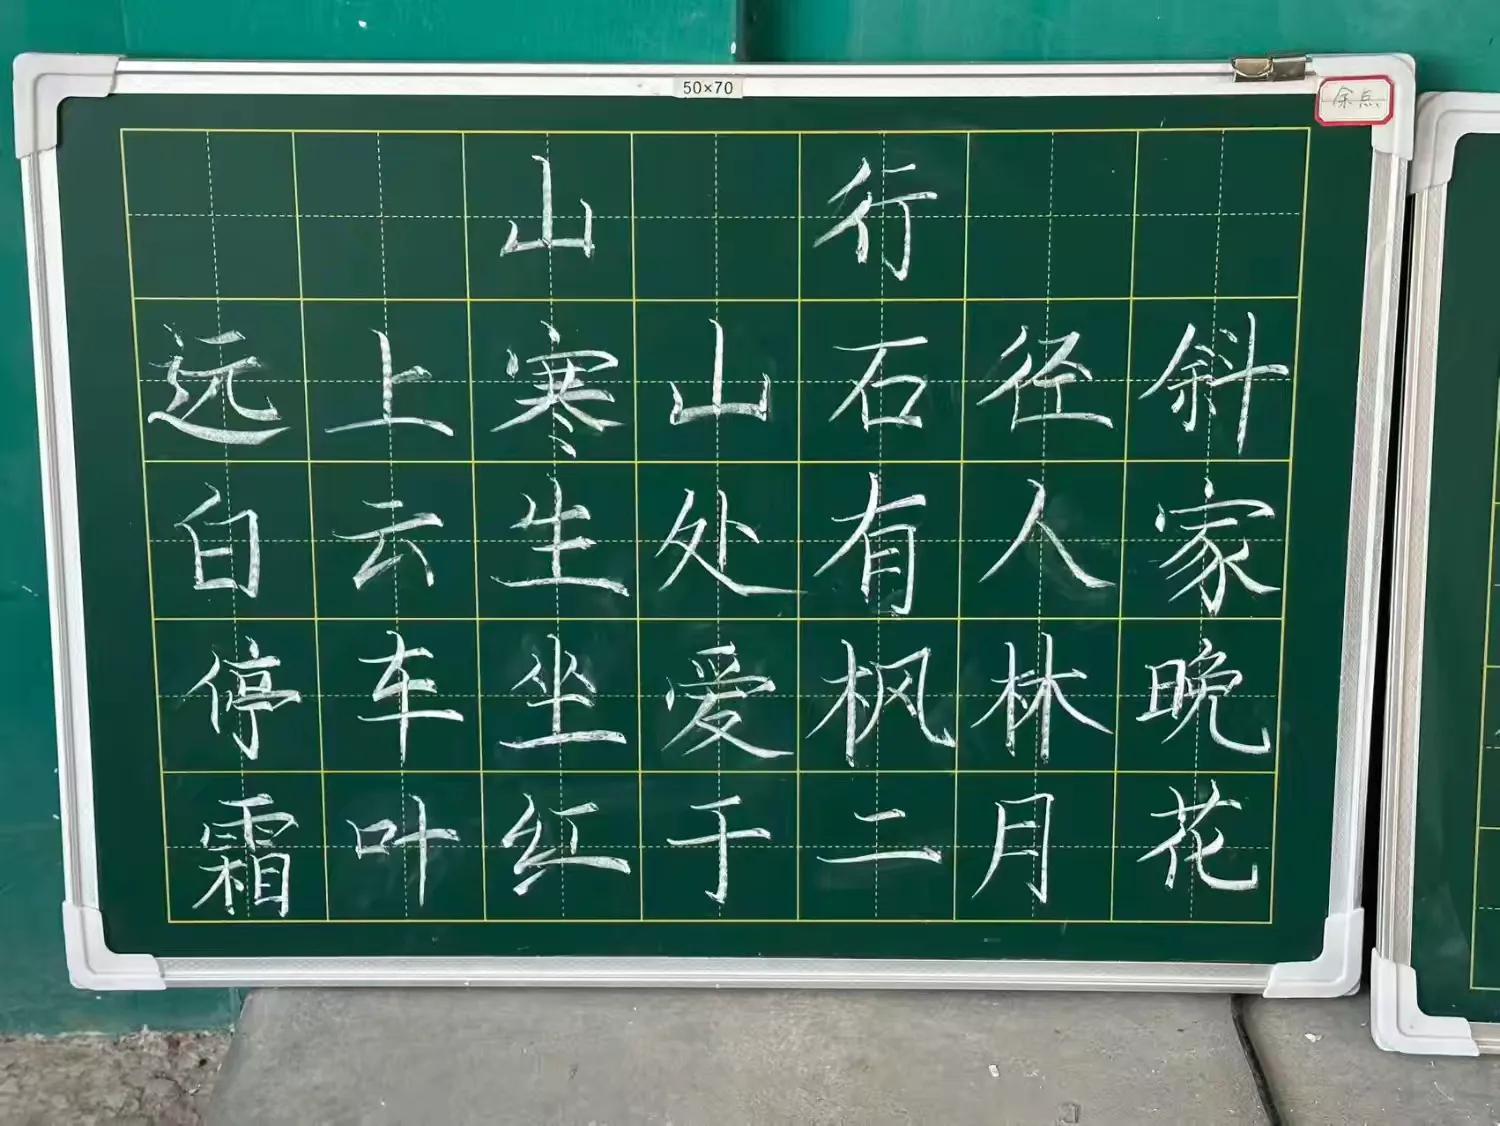 50×70
山行
远上寒山石径斜
白云生处有人家
停车坐爱枫林晚
霜叶红于二月花